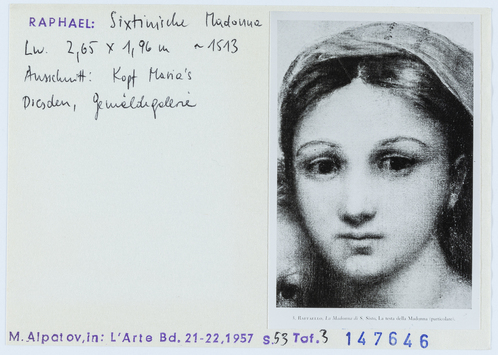 RAPHAEL: Sixtinische Madonna
Lw. 2,65 x 1,96 m ~1513
Ausschnitt: Kopf Maria's
Dresden, Gemäldegalerie
3. RAFFAELLO: La Madonna di S. Sisto. La testa della Madonna (particolare).
M. Alpatov, in: L'Arte Bd. 21-22, 1957 S. 53 Taf. 3 147646